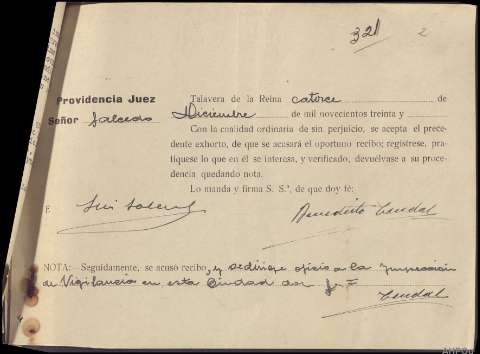 321 2
Providencia Juez
Señor Salcedo
Talavera de la Reina catorce de
Diciembre de mil novecientos treinta y
Con la cualidad ordinaria de sin perjuicio, se acepta el prece-
dente exhorto, de que se acusará el oportuno recibo; regístrese, pra-
tíquese lo que en él se interesa, y verificado, devuélvase a su proce-
dencia, quedando nota.
Lo manda y firma S. S.ª, de que doy fé:
Luis Salcedo Benedicto Cendal
NOTA.—Seguidamente, se acusó recibo, y se dirige oficio a la Inspección
de Vigilancia en esta Ciudad doy fé
Cendal